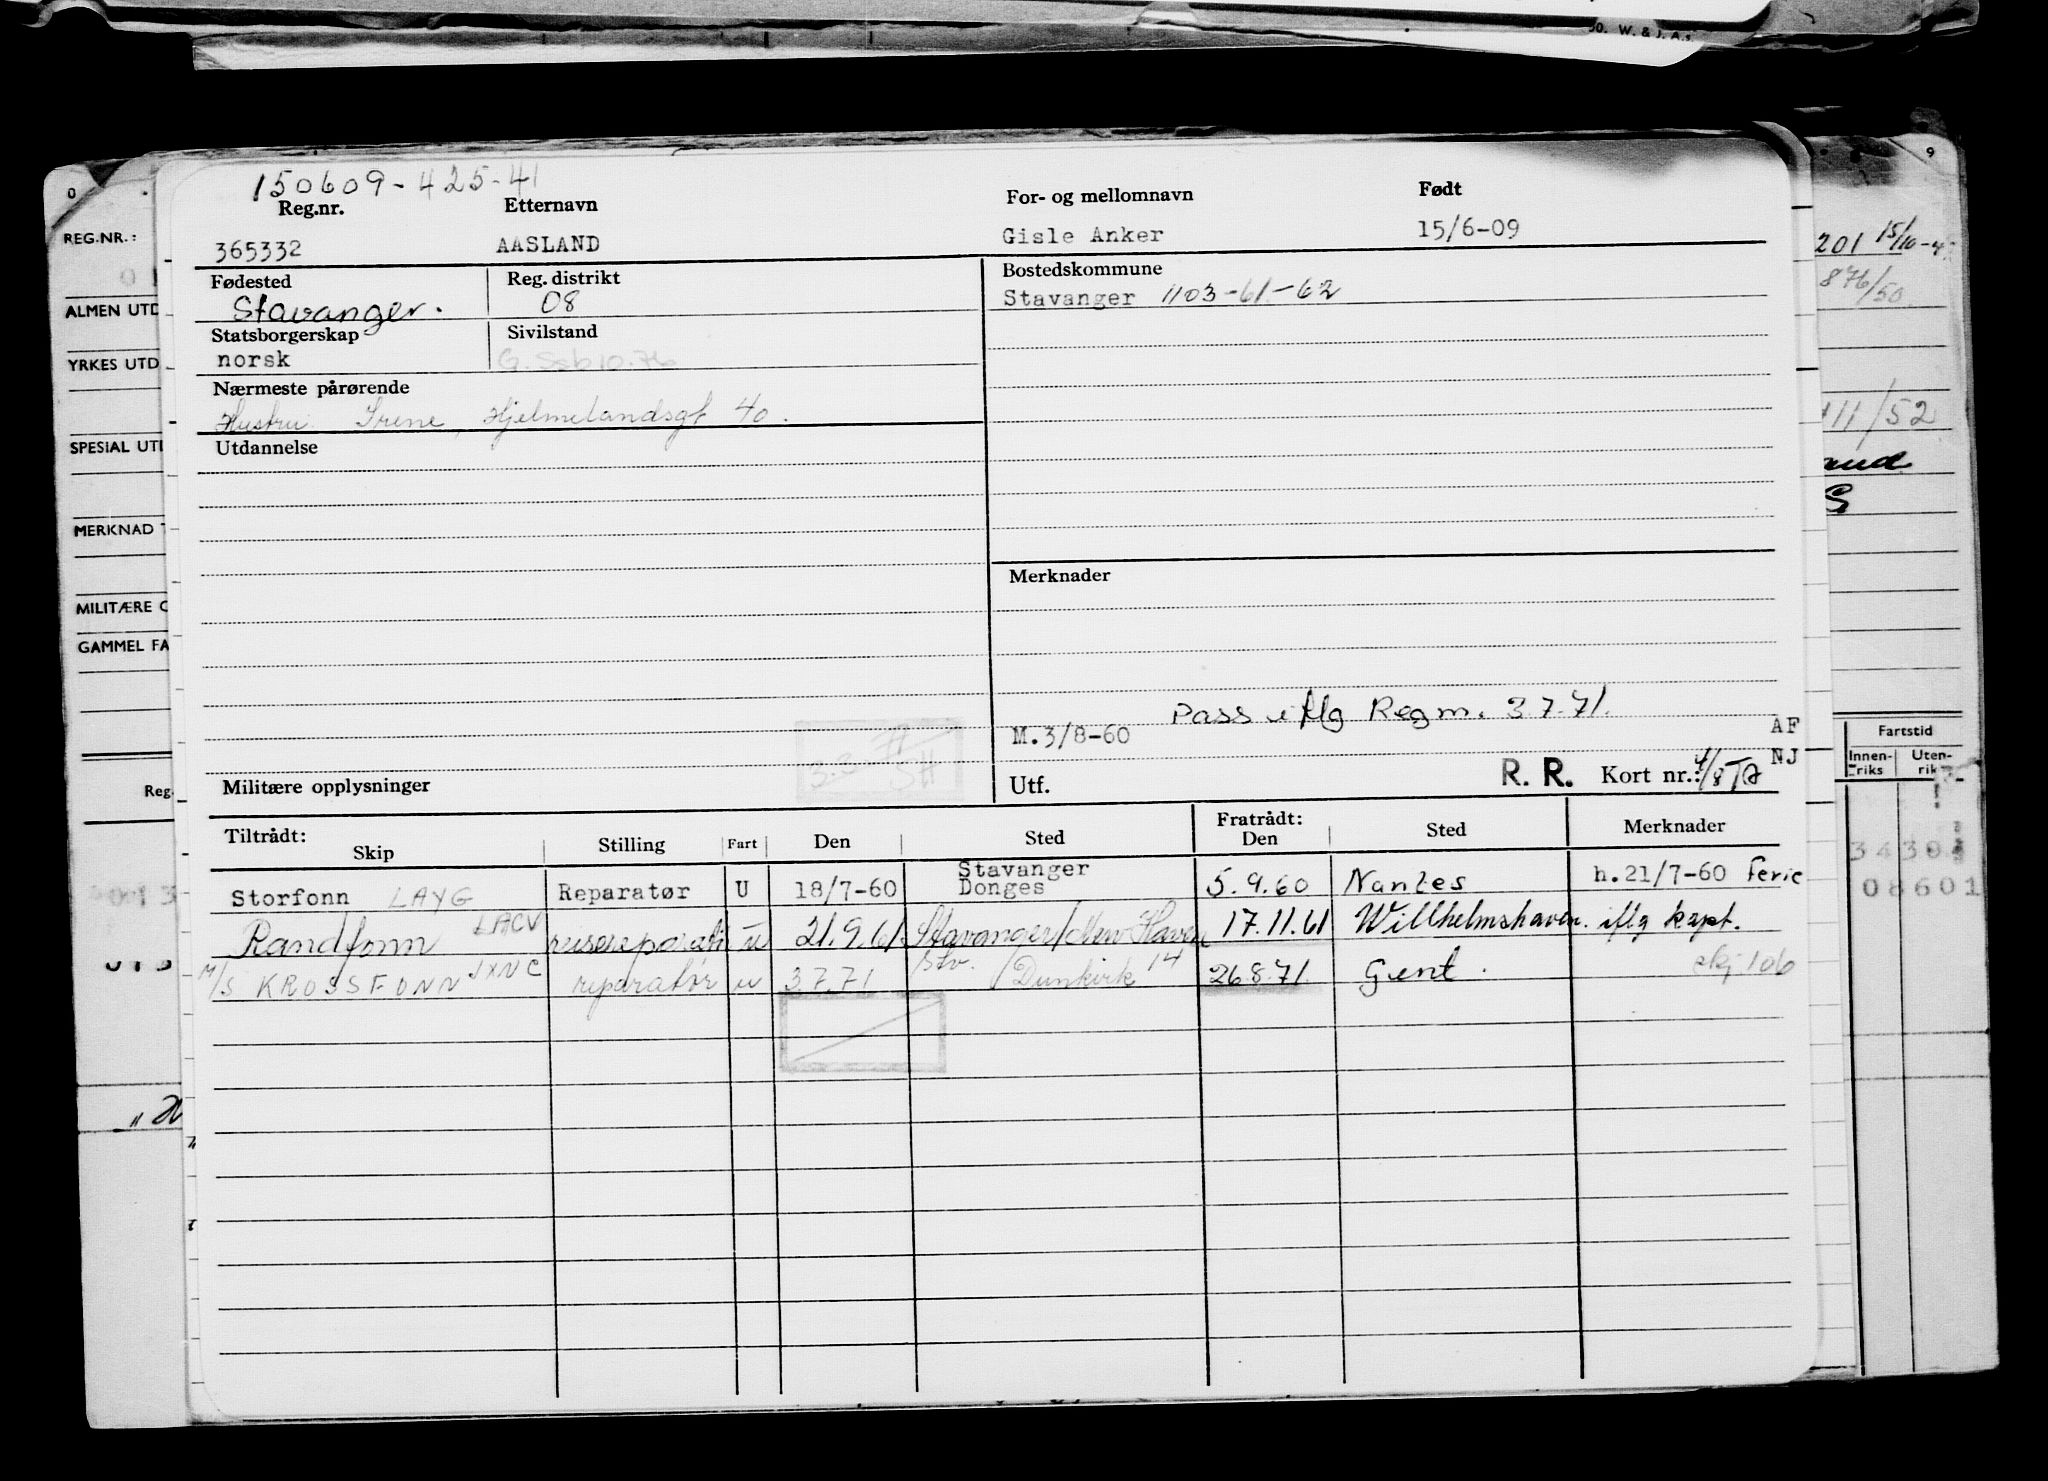 50. W. & J. A.s.
150609-425-41
Reg.nr. Etternavn For- og mellomnavn Født
365332 AASLAND Gisle Anker 15/6-09
Fødested Reg. distrikt Bostedskommune
Stavanger. 08 Stavanger 1103-61-62
Statsborgerskap Sivilstand
norsk G. Ssb 10.76
Nærmeste pårørende
Hustru Irene, Hjelmelandsgt 40.
Utdannelse
Merknader
Pass iflg Regm. 3.7.71.
M.3/8-60 AF
NJ
Militære opplysninger Utf. R. R. Kort nr.:
Tiltrådt: Fratrådt:
Skip Stilling Fart Den Sted Den Sted Merknader
Stavanger
Storfonn LAYG Reparatør U 18/7-60 Donges 5.9.60 Nantes h.21/7-60 Ferie
Randfonn LACV reisereparatør u 21.9.61 Stavanger/New Haven 17.11.61 Willhelmshaven. iflg kapt.
M/S KROSSFONN JXNC reparatør u 3.7.71 Stv. /Dunkirk 14 26.8.71. Gent. skj 106
REG.NR.:
ALMEN UTD
YRKES UTD
SPESIAL UTD
MERKNAD T
MILITÆRE O
GAMMEL FA
Reg.
201 15/10-4
876/50
11/52
Fartstid
Innen-riks Uten-rik
3430
08601